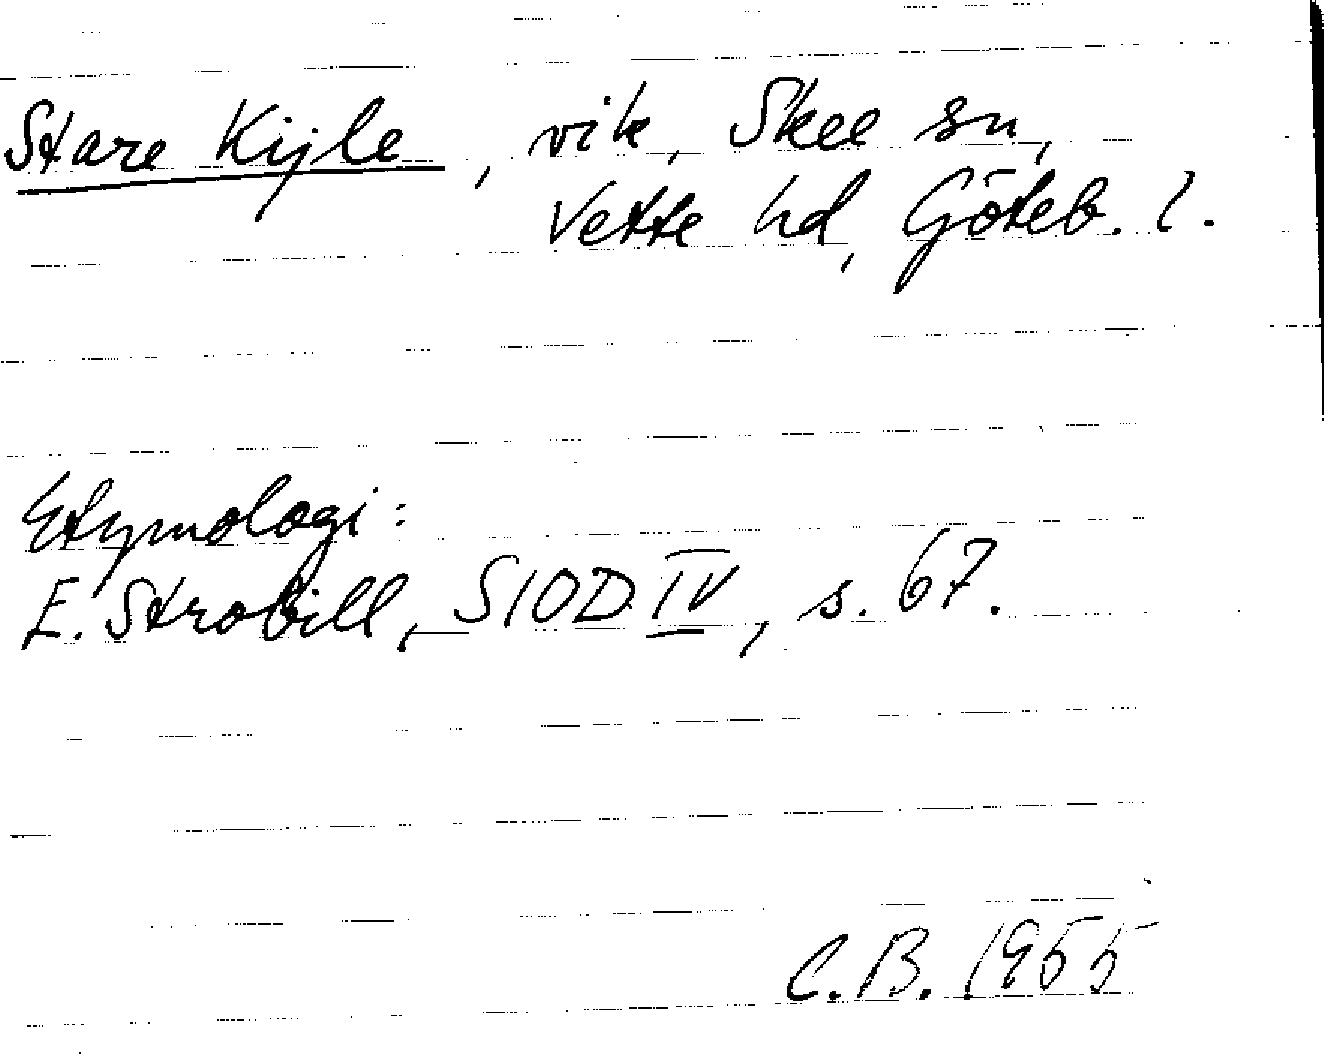 Stare Kijle, vik, Skee sn,
Vette hd, Göteb. l.
Etymologi:
E. Strobill, SIOD IV, s. 67.
C.B. 1955